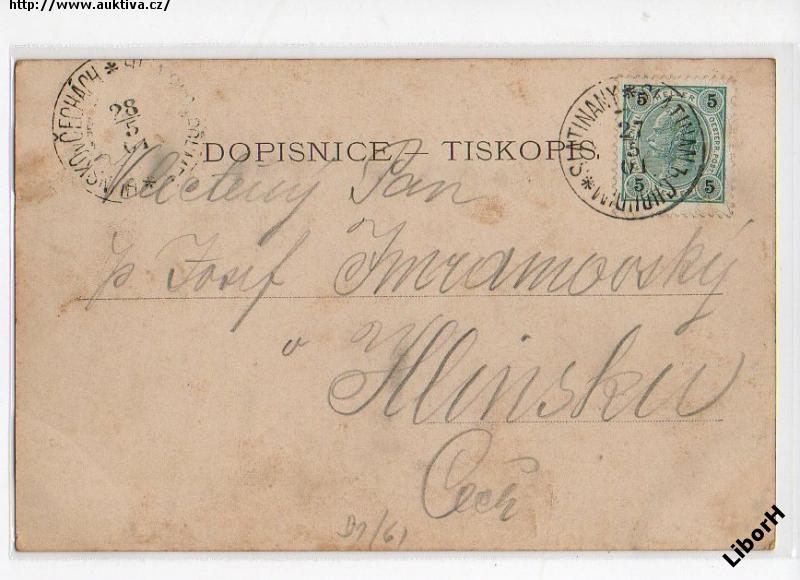 http://www.auktiva.cz/
28
5
DOPISNICE – TISKOPIS.
SLATINANY * SLATINAN
5 5
5 5
Velectěný Pan
p Josef Imramovský
v Hlinsku
Čech
D1/61
LiborH